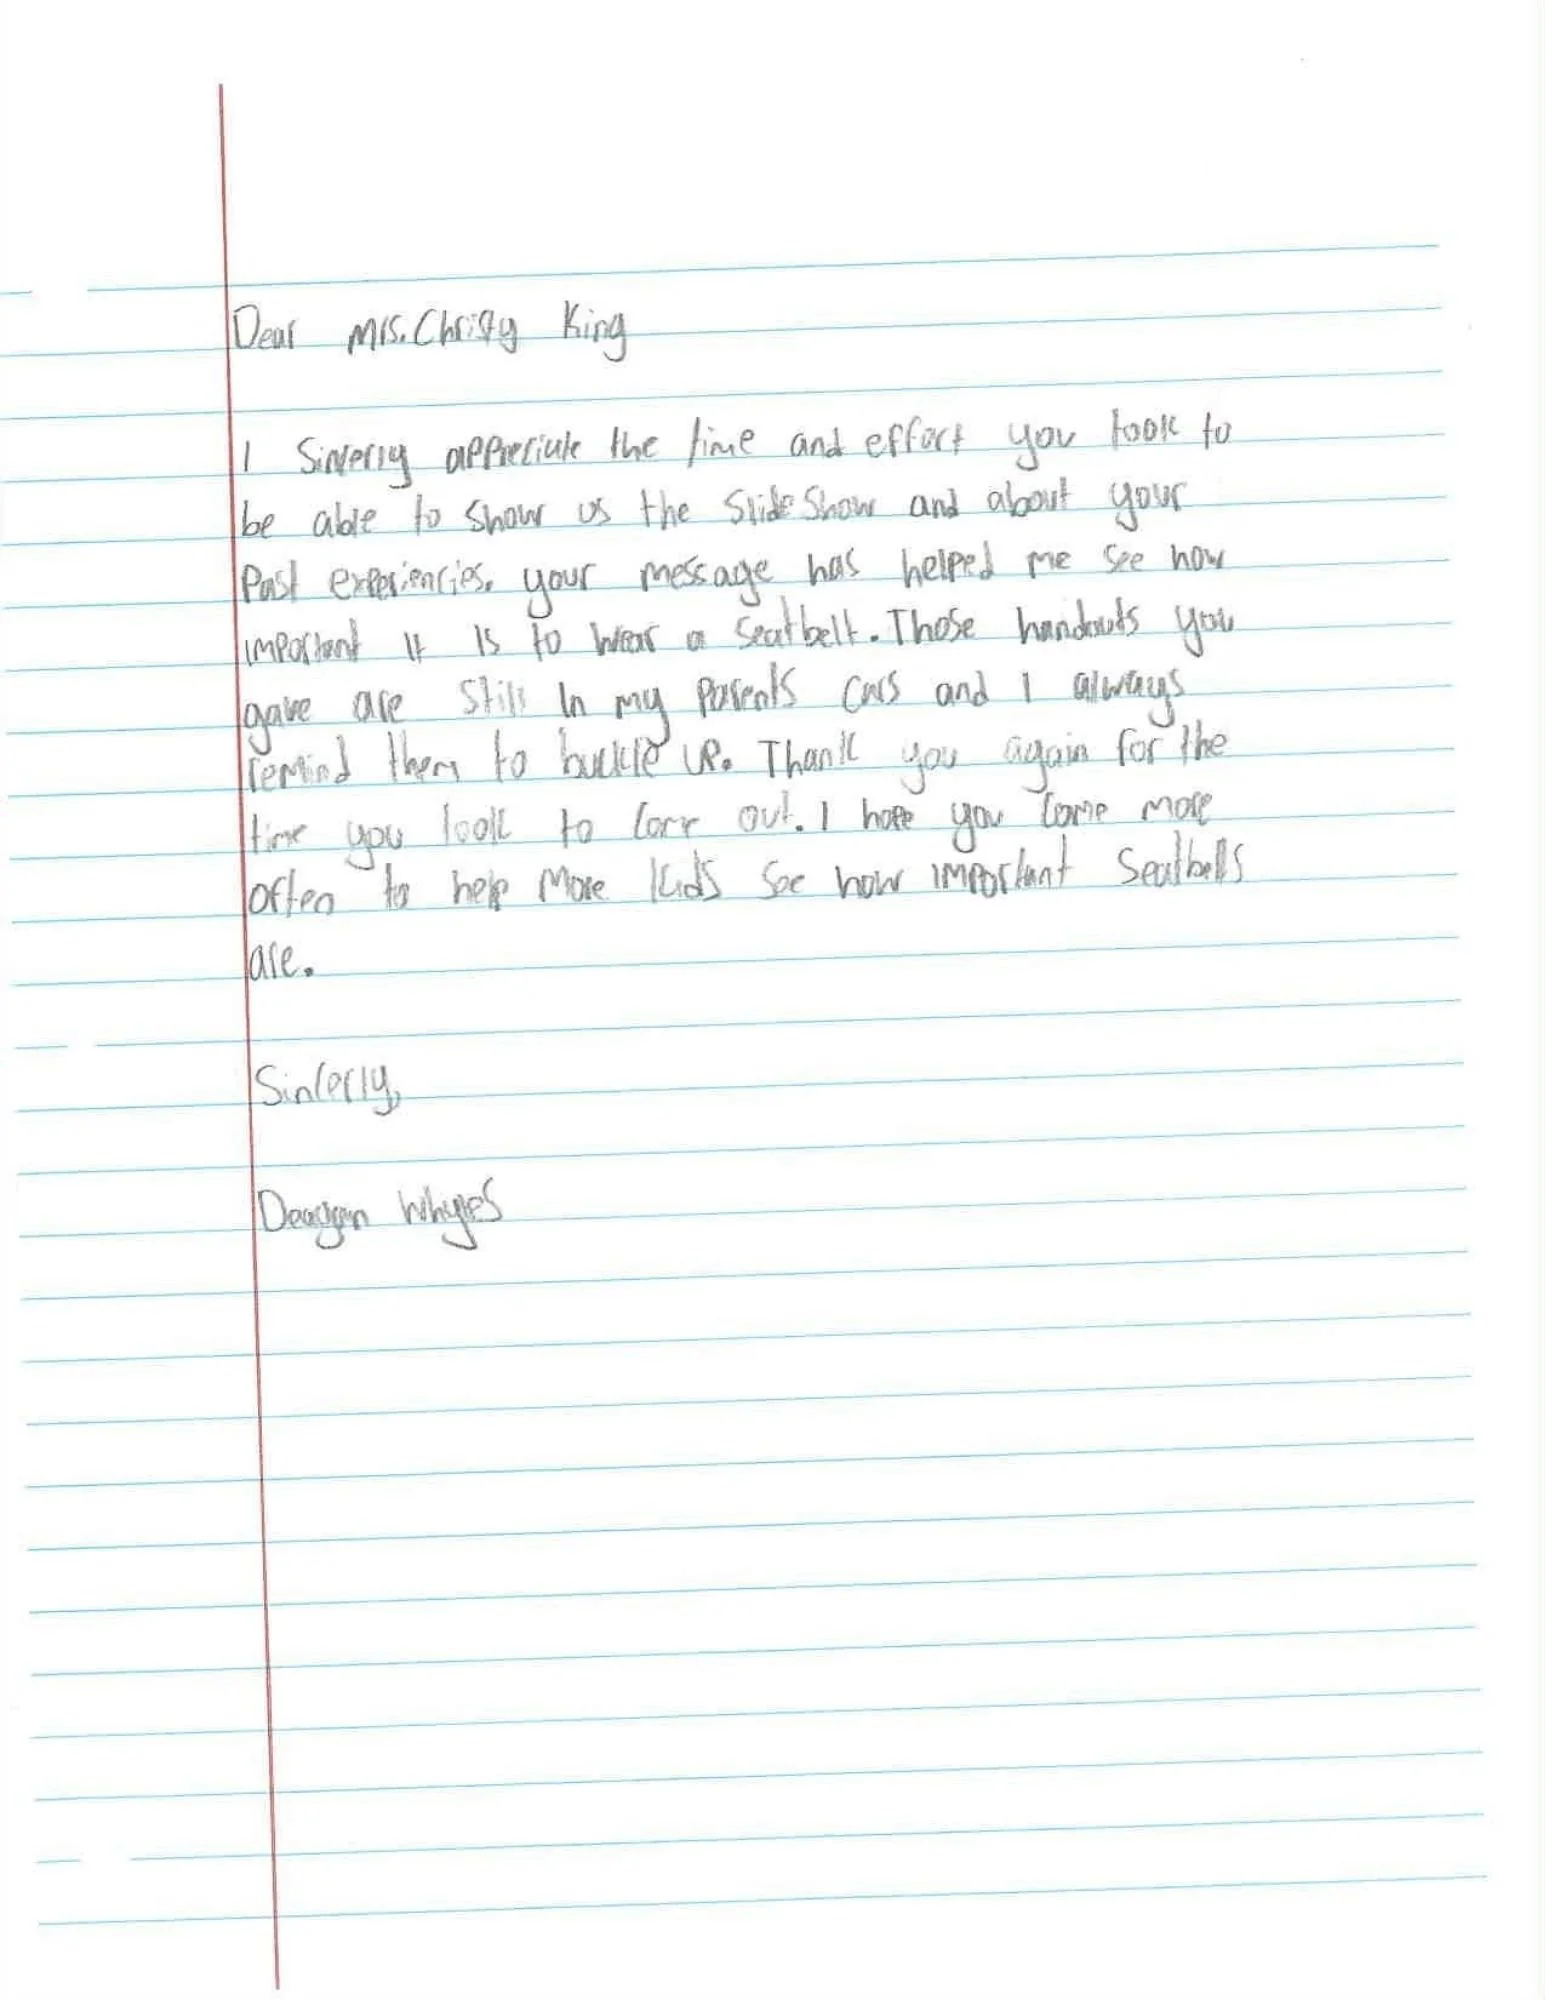 Dear Mrs. Christy King
I Sincerly appreciate the time and effort you took to
be able to show us the Slide Show and about your
Past experiencies. your message has helped me see how
important it is to wear a seatbelt. Those handouts you
gave are still in my parents cars and I always
remind them to buckle up. Thank you again for the
time you took to come out. I hope you come more
often to help more kids see how important Seatbelts
are.
Sincerly,
Deagan Whyles